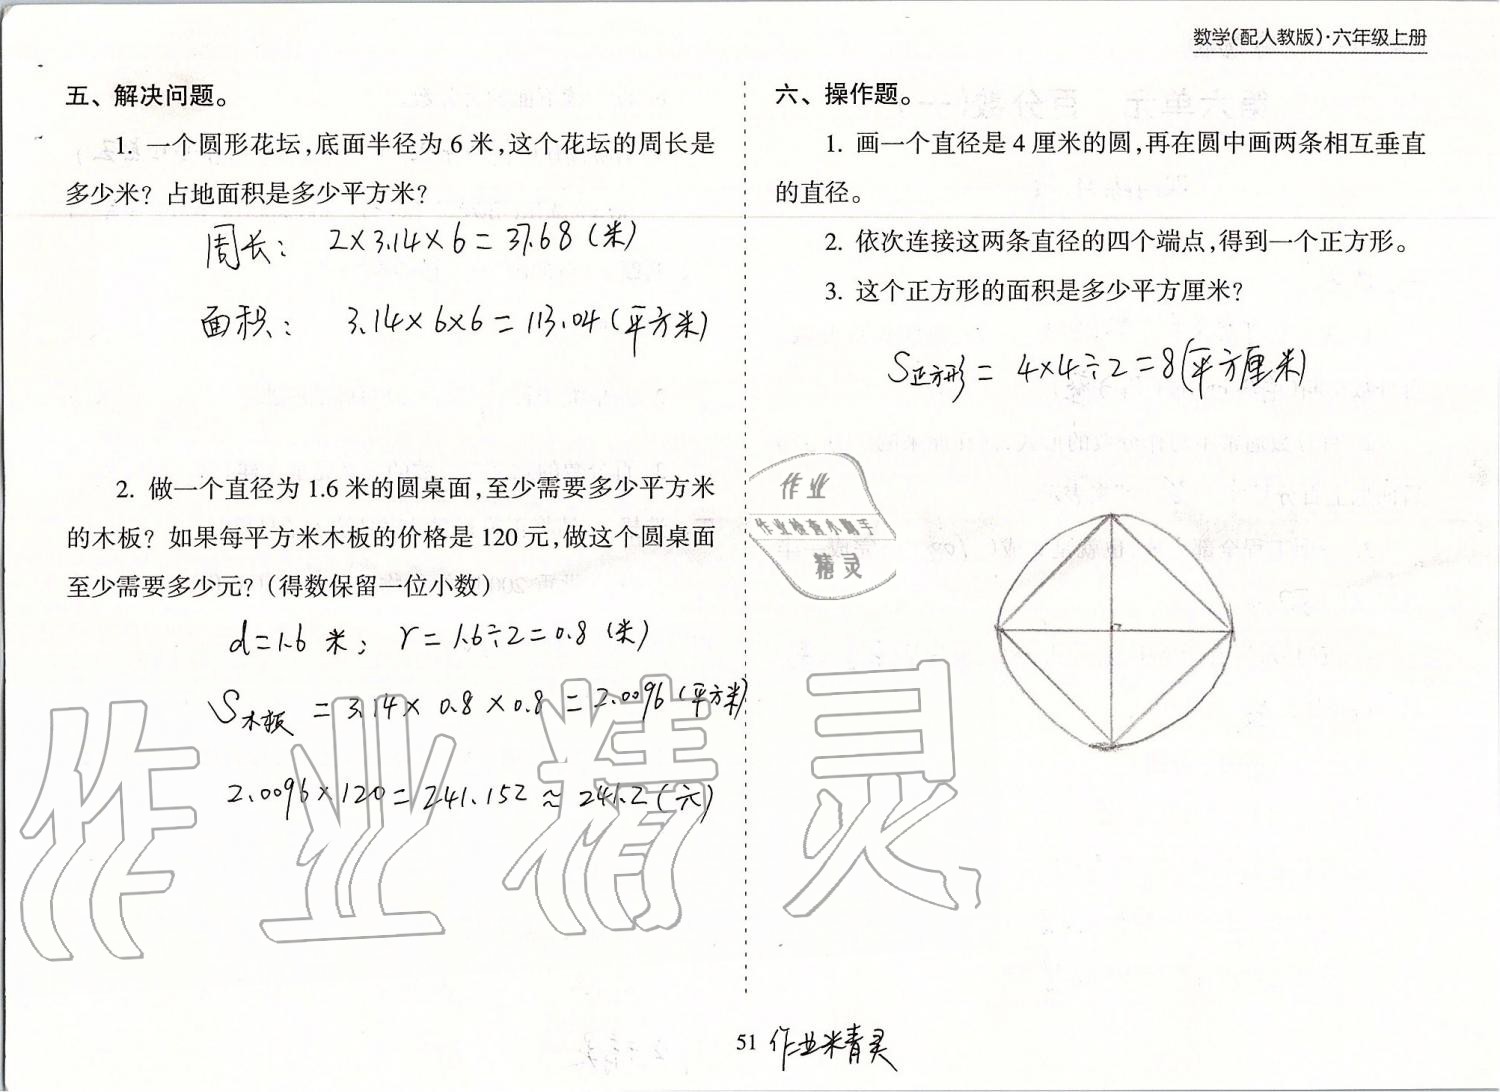 数学(配人教版)·六年级上册
五、解决问题。
1. 一个圆形花坛,底面半径为6米,这个花坛的周长是
多少米？占地面积是多少平方米？
周长： 2×3.14×6=37.68(米)
面积： 3.14×6×6=113.04(平方米)
2. 做一个直径为1.6米的圆桌面,至少需要多少平方米
的木板？如果每平方米木板的价格是120元,做这个圆桌面
至少需要多少元？(得数保留一位小数)
d=1.6米； r=1.6÷2=0.8(米)
S木板=3.14×0.8×0.8=2.0096(平方米)
2.0096×120=241.152≈241.2(元)
六、操作题。
1. 画一个直径是4厘米的圆,再在圆中画两条相互垂直
的直径。
2. 依次连接这两条直径的四个端点,得到一个正方形。
3. 这个正方形的面积是多少平方厘米？
S正方形=4×4÷2=8(平方厘米)
作业
作业检查小助手
精灵
作业精灵
51
作业米青灵